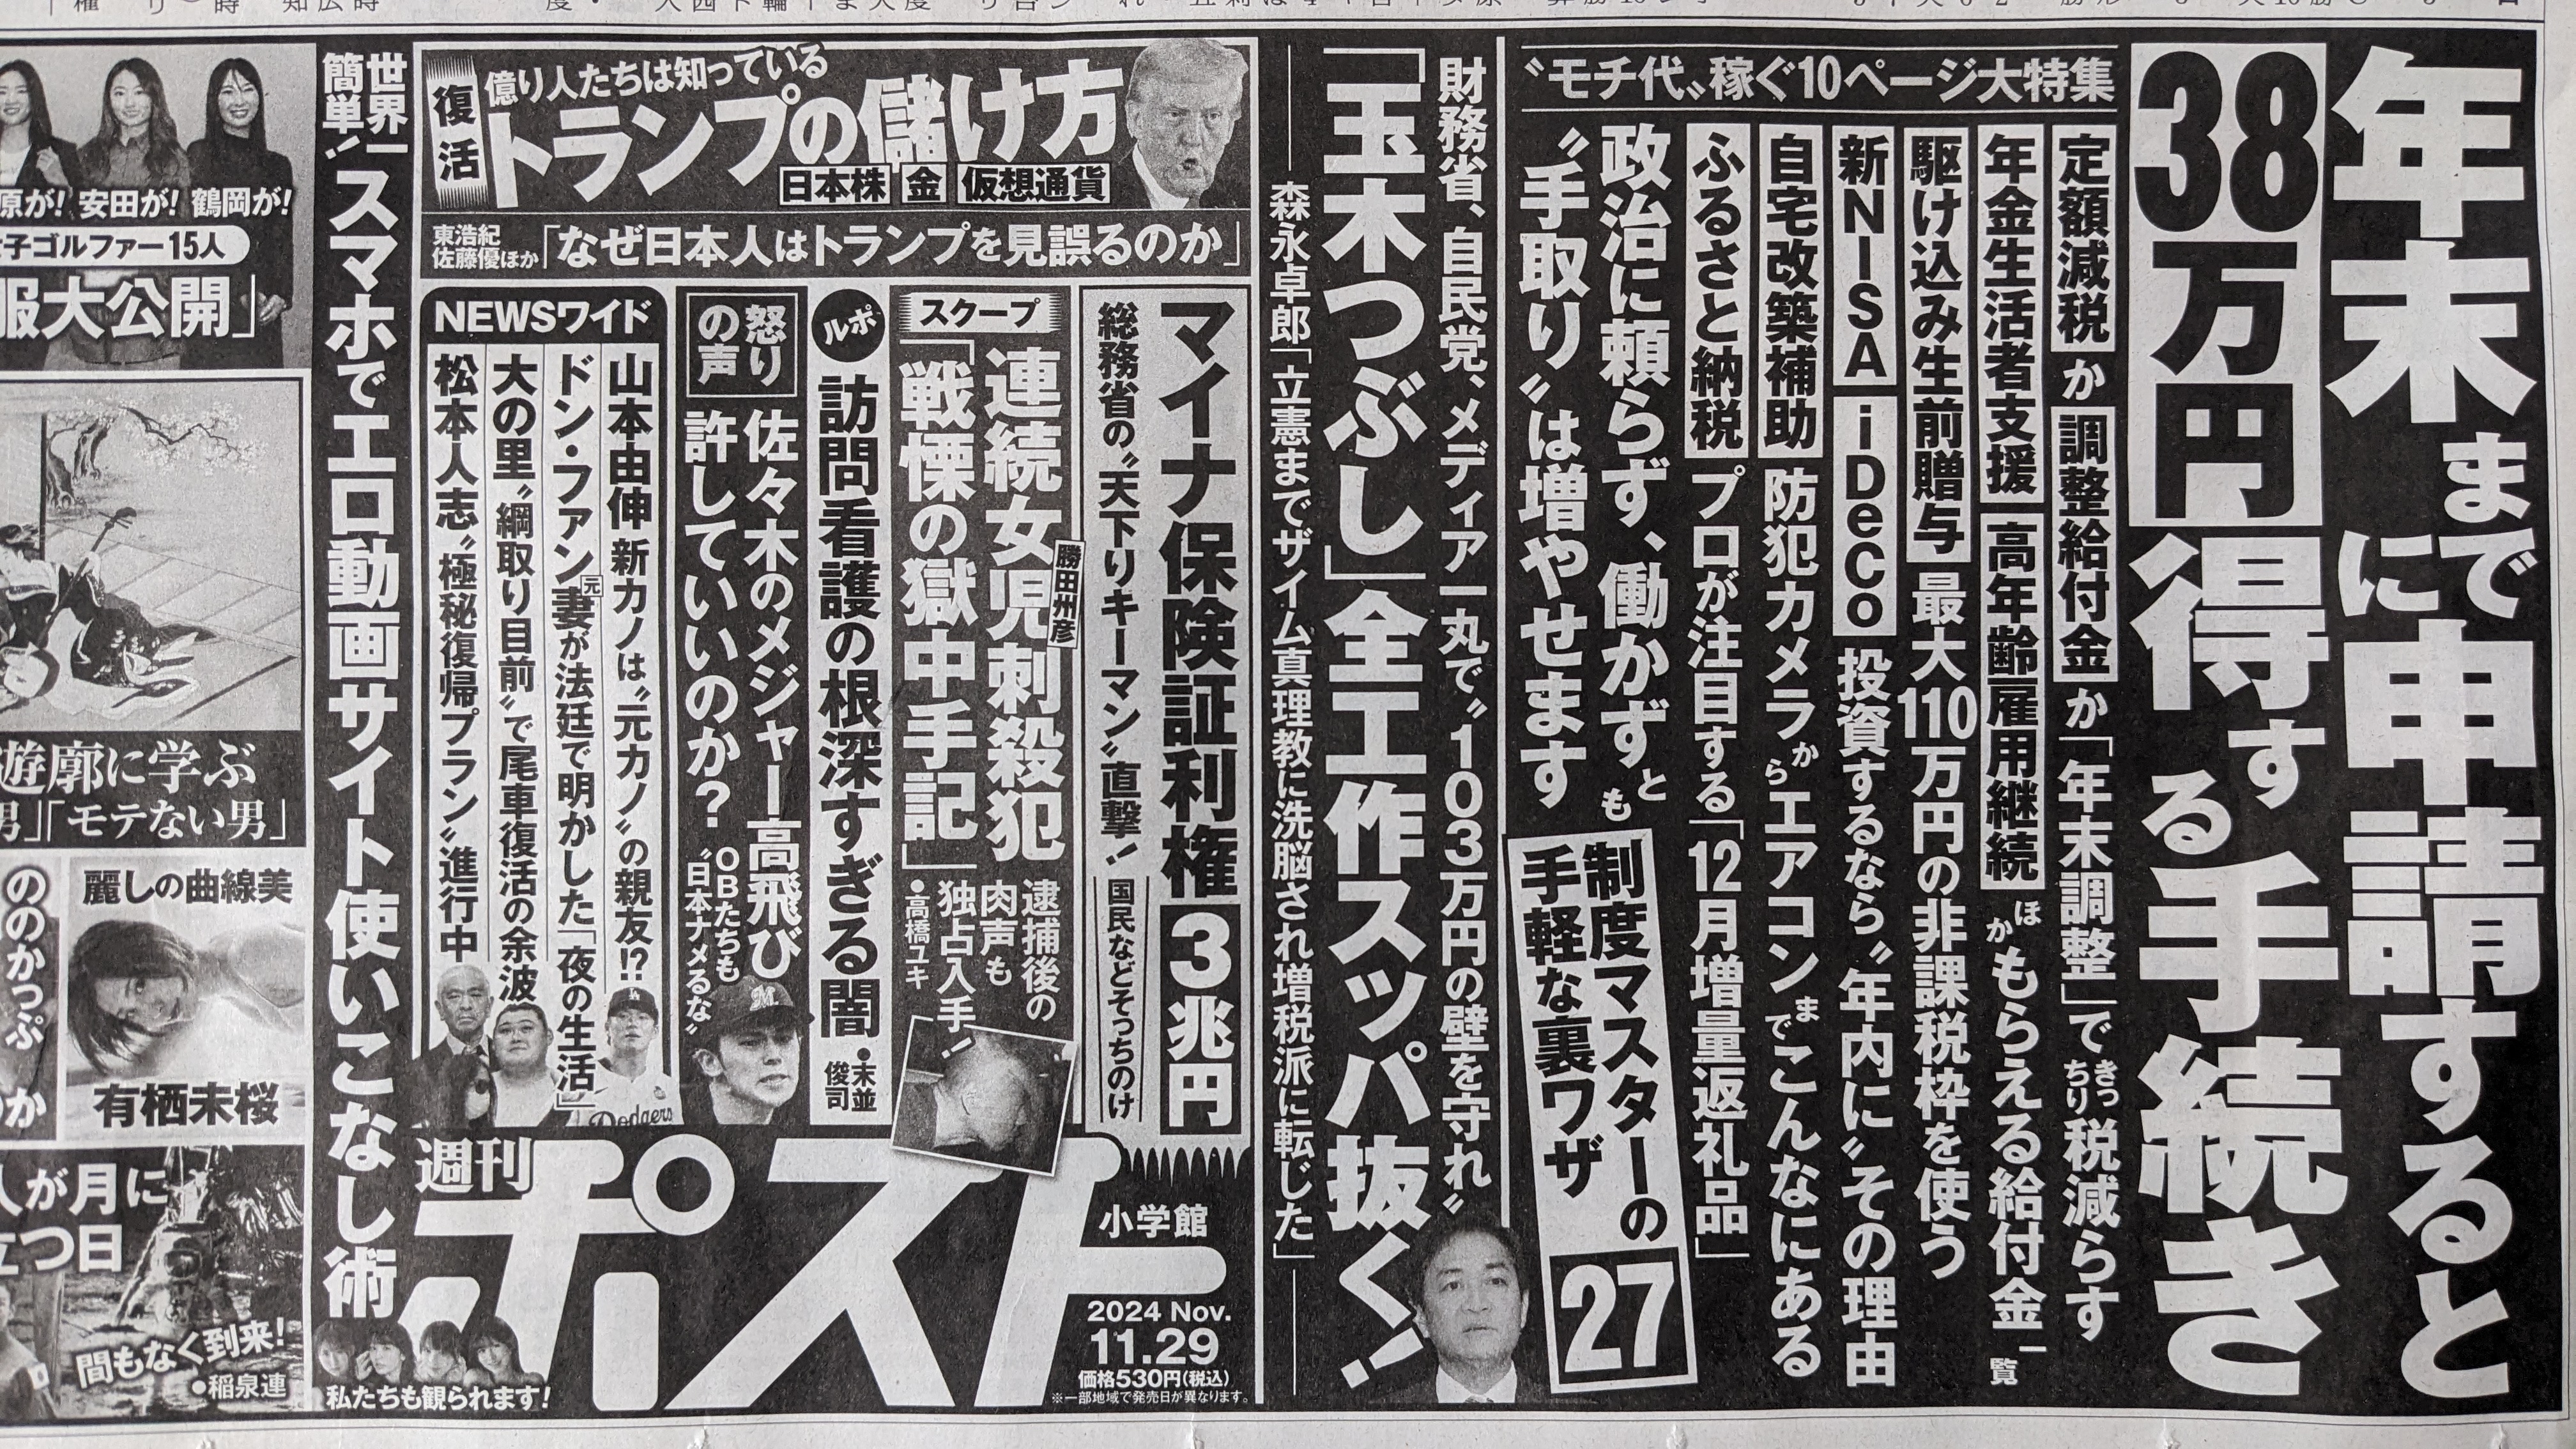 年末までに申請すると
38万円得する手続き
〝モチ代〟稼ぐ10ページ大特集
定額減税か調整給付金か「年末調整」できっちり税減らす
年金生活者支援 高年齢雇用継続ほかもらえる給付金一覧
駆け込み生前贈与 最大110万円の非課税枠を使う
新NISA iDeCo 投資するなら〝年内に〟その理由
自宅改築補助 防犯カメラからエアコンまでこんなにある
ふるさと納税 プロが注目する「12月増量返礼品」
政治に頼らず、働かずとも
〝手取り〟は増やせます
制度マスターの
手軽な裏ワザ
27
財務省、自民党、メディア一丸で〝103万円の壁を守れ〟
「玉木つぶし」全工作スッパ抜く!
森永卓郎「立憲までザイム真理教に洗脳され増税派に転じた」
復活
億り人たちは知っている
トランプの儲け方
日本株 金 仮想通貨
東浩紀
佐藤優ほか
「なぜ日本人はトランプを見誤るのか」
マイナ保険証利権3兆円
総務省の〝天下りキーマン〟直撃!
国民などそっちのけ
スクープ
連続女児刺殺犯
勝田州彦
「戦慄の獄中手記」
逮捕後の
肉声も
独占入手!
●高橋ユキ
ルポ
訪問看護の根深すぎる闇
●末並俊司
怒り
の声
佐々木のメジャー高飛び
許していいのか?
OBたちも
〝日本ナメるな〟
NEWSワイド
山本由伸 新カノは〝元カノ〟の親友!?
ドン・ファン元妻が法廷で明かした「夜の生活」
大の里〝綱取り目前〟で尾車復活の余波
松本人志〝極秘復帰プラン〟進行中
Dodgers
週刊
ポスト
小学館
2024 Nov.
11.29
価格530円(税込)
※一部地域で発売日が異なります。
世界一
簡単!
スマホでエロ動画サイト使いこなし術
私たちも観られます!
原が!安田が!鶴岡が!
子ゴルファー15人
服大公開」
遊廓に学ぶ
男」「モテない男」
麗しの曲線美
有栖未桜
ののかっぷ
か
人が月に
立つ日
間もなく到来!
●稲泉連